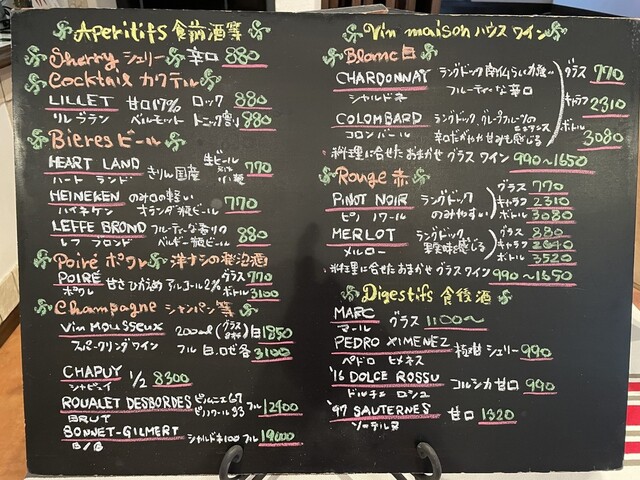 Aperitifs 食前酒等
Sherry シェリー 辛口 880
Cocktail カクテル
LILLET 甘口17% ロック 880
リレブラン ベルモット トニック割り 880
Bières ビール
HEART LAND きりん国産 生ビール 770
ハートランド 小瓶
HEINEKEN のみ口の軽い 770
ハイネケン オランダ瓶ビール
LEFFE BROND フルーティな香りの 880
レフ ブロンド ベルギー瓶ビール
Poiré ポワレ 洋ナシの発泡酒
POIRÉ 甘さひかえめ アルコール2% グラス 770
ポワレ ボトル 3100
Champagne シャンパン等
Vin Mousseux 200ml(グラス2杯) 白 1850
スパークリングワイン フル 白.ロゼ各 3100
CHAPUY 1/2 8300
シャピュイ
ROUALET DESBORDES ピノムニエ67 フル 12900
BRUT ピノノワール33
BONNET-GILMERT シャルドネ100 フル 19000
B/B
Vin maison ハウスワイン
Blanc 白
CHARDONNAY ラングドック 南仏らしい力強い グラス 770
シャルドネ フルーティーな辛口
キャラフ 2310
COLOMBARD ラングドック、グレープフルーツのニュアンス
コロンバール 辛口だがやや甘みも感じる ボトル 3080
料理に合せたおまかせ グラスワイン 990〜1650
Rouge 赤
グラス 770
PINOT NOIR ラングドック キャラフ 2310
ピノノワール のみやすい ボトル 3080
グラス 880
MERLOT ラングドック、 キャラフ 2640
メルロー 果実味を感じる ボトル 3520
・料理に合せたおまかせ グラスワイン 990〜1650
Digestifs 食後酒
MARC グラス 1100〜
マール
PEDRO XIMENEZ 極甘シェリー 990
ペドロ ヒメネス
'16 DOLCE ROSSU コルシカ甘口 990
ドルチェ ロシュ
'97 SAUTERNES 甘口 1320
ソーテルヌ